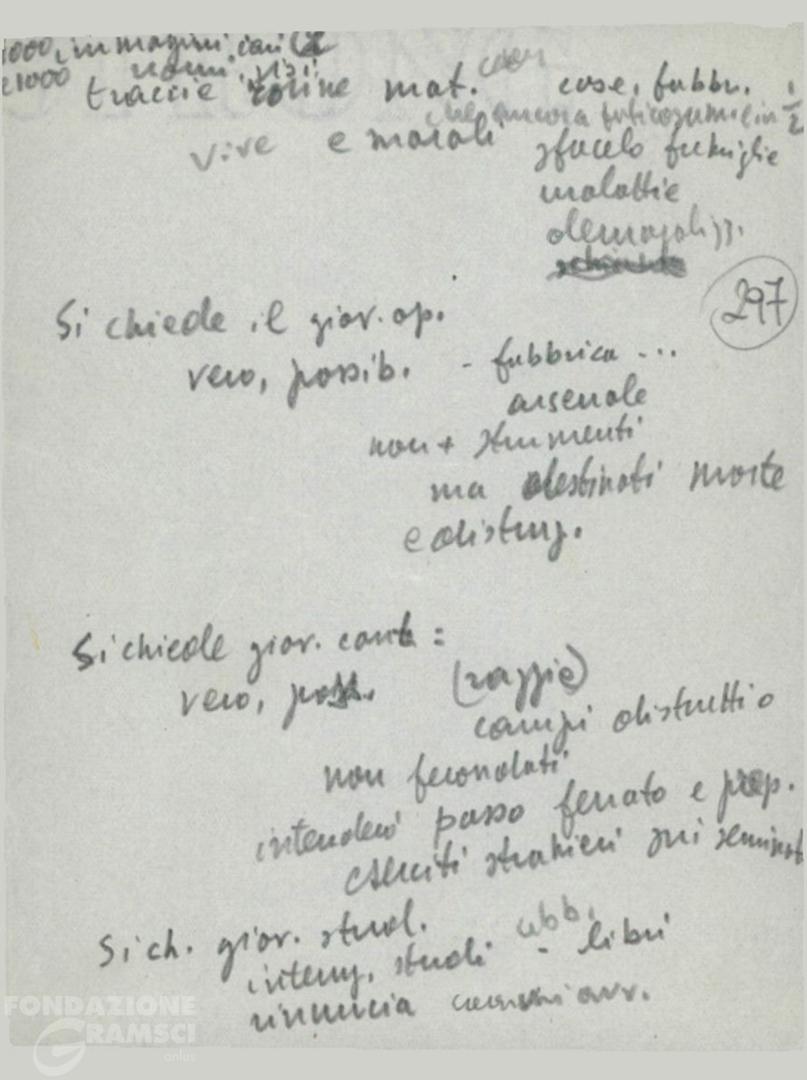 1000, immagini, cari
e 1000 nomi, visi
traccie rovine mat. case, fabbr. 1/2
che ancora
vive e morali sfacelo famiglie
malattie
demoralizz.
297
Si chiede il giov. op.
vero, possib. - fabbrica ...
arsenale
non + strumenti
ma destinati morte
e distruz.
Si chiede giov. cont :
vero, poss. (razzie)
campi distrutti o
non fecondati
intenderà passo ferrato e prep.
eserciti stranieri sui seminat
Si ch. giov. stud.
interruz. studi abb. - libri
rinuncia avv.
FONDAZIONE
GRAMSCI
onlus